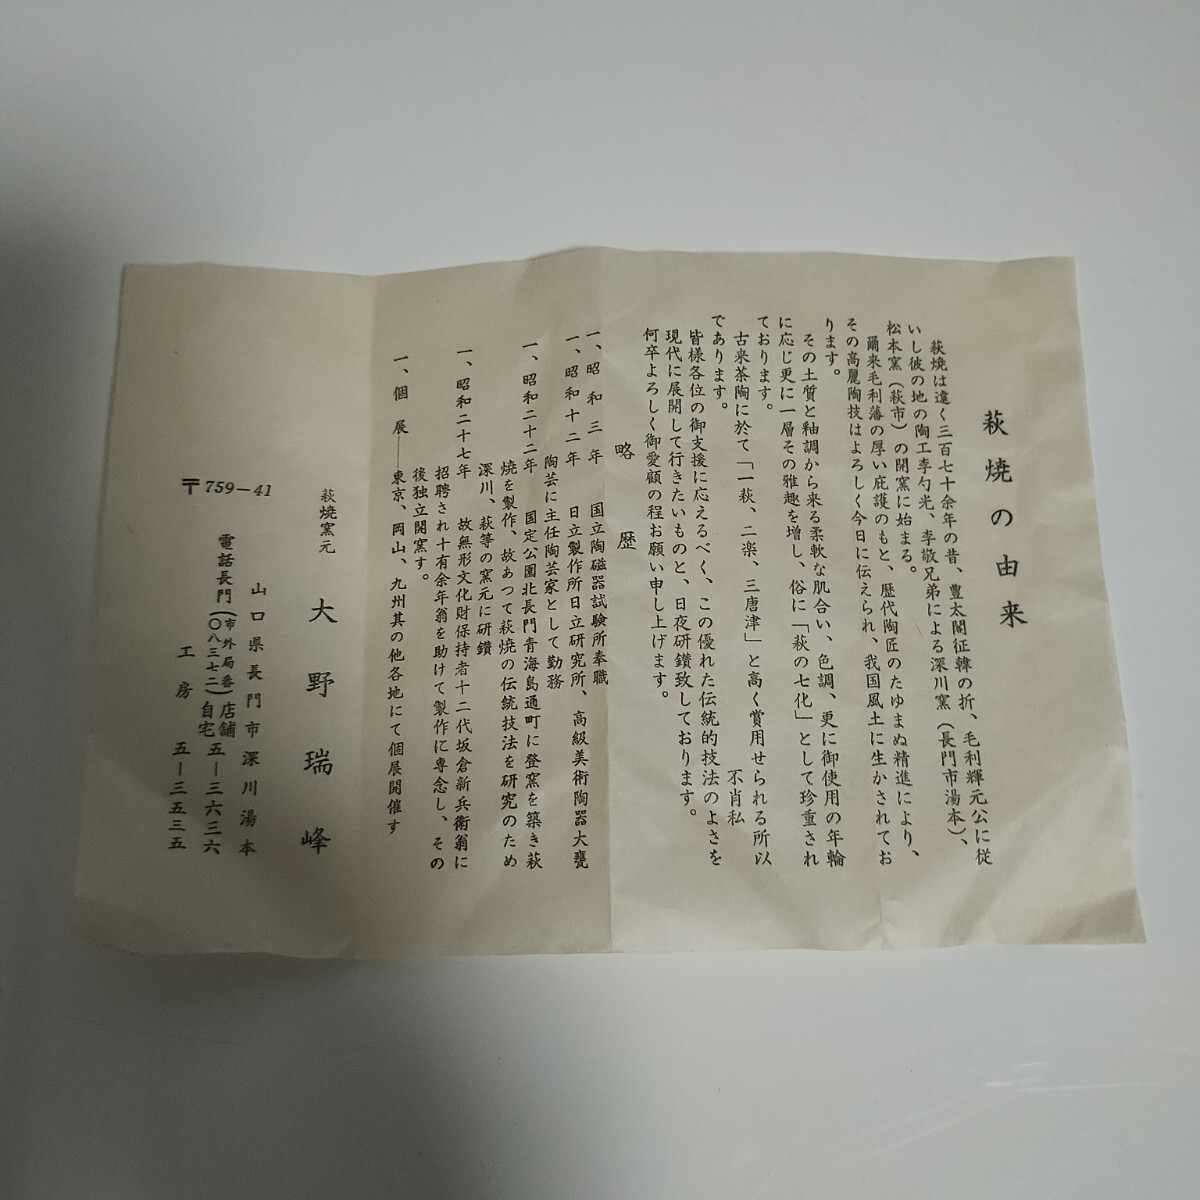 萩焼の由来
萩焼は遠く三百七十余年の昔、豊太閤征韓の折、毛利輝元公に従
いし彼の地の陶工李勺光、李敬兄弟による深川窯（長門市湯本）、
松本窯（萩市）の開窯に始まる。
爾来毛利藩の厚い庇護のもと、歴代陶匠のたゆまぬ精進により、
その高麗陶技はよろしく今日に伝えられ、我国風土に生かされてお
ります。
その土質と釉調から来る柔軟な肌合い、色調、更に御使用の年輪
に応じ更に一層その雅趣を増し、俗に「萩の七化」として珍重され
ております。
古来茶陶に於て「一萩、二楽、三唐津」と高く賞用せられる所以
であります。
不肖私
皆様各位の御支援に応えるべく、この優れた伝統的技法のよさを
現代に展開して行きたいものと、日夜研鑽致しております。
何卒よろしく御愛顧の程お願い申し上げます。
略歴
一、昭和三年　国立陶磁器試験所奉職
一、昭和十二年　日立製作所日立研究所、高級美術陶器大甕
陶芸に主任陶芸家として勤務
一、昭和二十二年　国定公園北長門青海島通町に登窯を築き萩
焼を製作、故あつて萩焼の伝統技法を研究のため
深川、萩等の窯元に研鑽
一、昭和二十七年　故無形文化財保持者十二代坂倉新兵衛翁に
招聘され十有余年翁を助けて製作に専念し、その
後独立開窯す。
一、個展――東京、岡山、九州其の他各地にて個展開催す
萩焼窯元　大野瑞峰
〒759-41
山口県長門市深川湯本
電話長門（市外局番〇八三七二）店舗自宅五―三六三六
工房　五―三五三五